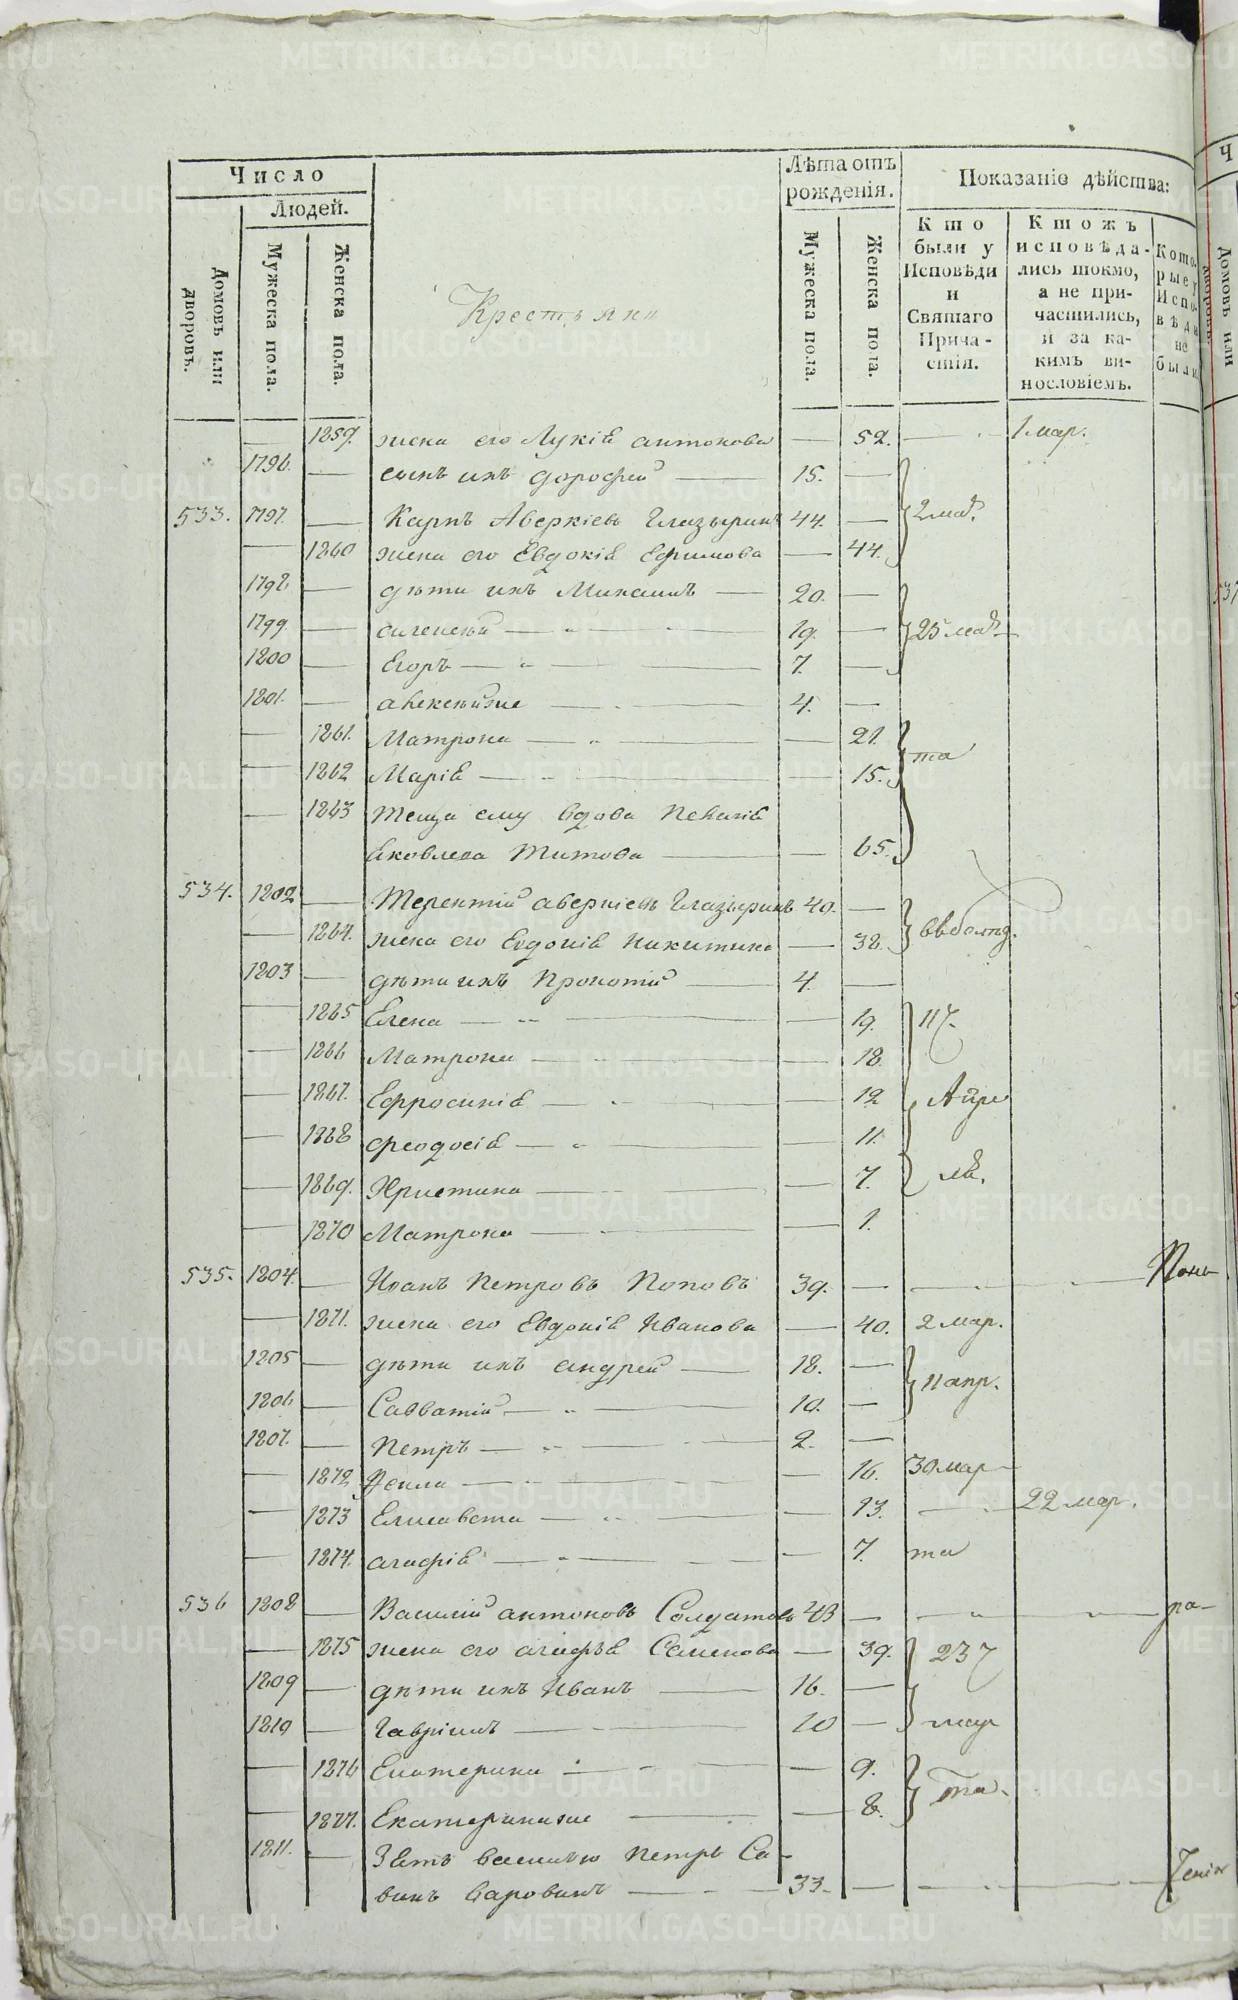 Число
Людей.
Домовъ или дворовъ.
Мужеска пола.
Женска пола.
Крестьяни
Лѣта отъ рожденія.
Мужеска пола.
Женска пола.
Показаніе дѣйства:
Кто были у Исповѣди и Святаго Причастія.
Ктожъ исповѣдались токмо, а не причастились, и за какимъ винословіемъ.
Которые у Исповѣди не были.
1859. жена его Лукія антонова — 52. — 1 мар.
1796. — сынъ ихъ дорофей — 15. —
533. 1797. — Карпъ Аверкіевъ Глазыринъ 44. — 2 мар.
— 1860 жена его Евдокія Ефимова — 44.
1798 — дѣти ихъ Михаилъ — 20. —
1799. — — 19. — 25 мар.
1800 — Егоръ — 7. —
1801. — — 4. —
— 1861. Матрона — 21.
— 1862 Марія — 15. та
— 1863 теща ему вдова Пелагія
Яковлева Титова — 65.
534. 1802 — Терентій аверкіевъ Глазыринъ 40. —
— 1864. жена его Евдокія Никитина — 38.
1803 — дѣти ихъ Прокопій — 4. —
— 1865 Елена — 19. 17
— 1866 Матрона — 18
— 1867. Ефросинія — 12 Апре
— 1868 феодосія — 11.
— 1869. Христина — 7. ля.
— 1870 Матрона — 1.
535. 1804. — Иванъ Петровъ Поповъ 39. —
— 1871. жена его Евдокія Иванова — 40. 2 мар.
1805 — дѣти ихъ андрей — 18. —
1806 — Савватій — 10. — 11 апр.
1807. — Петръ — 2. —
— 1872 Фекла — 16. 30 мар
— 1873 Елисавета — 13. — 22 мар.
— 1874. агафія — 7. та
536 1808 — Василій антоновъ Солдатовъ 43 — ра-
— 1875 жена его агафья Семенова — 39. 23
1809 — дѣти ихъ Иванъ — 16. —
1810 — Гавріилъ — 10 — мар
— 1876 Екатерина — 9.
— 1877. — 8. та.
1811. — Зять василью Петръ Са-
винъ — 33. —